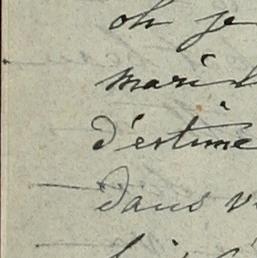 oh je
mari
d'estime
dans v